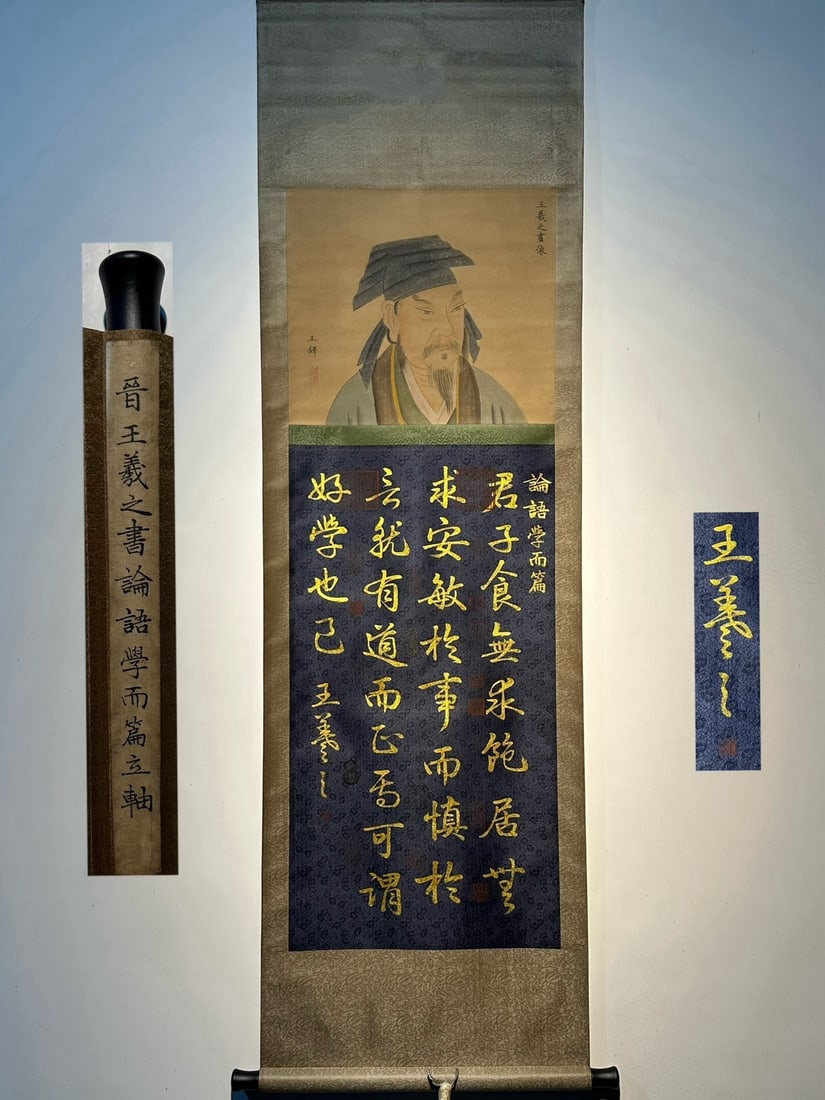 王羲之畫像
王繹
論語學而篇
君子食無求飽居無
求安敏於事而慎於
言就有道而正焉可謂
好學也已 王羲之
晉王羲之書論語學而篇立軸
王羲之